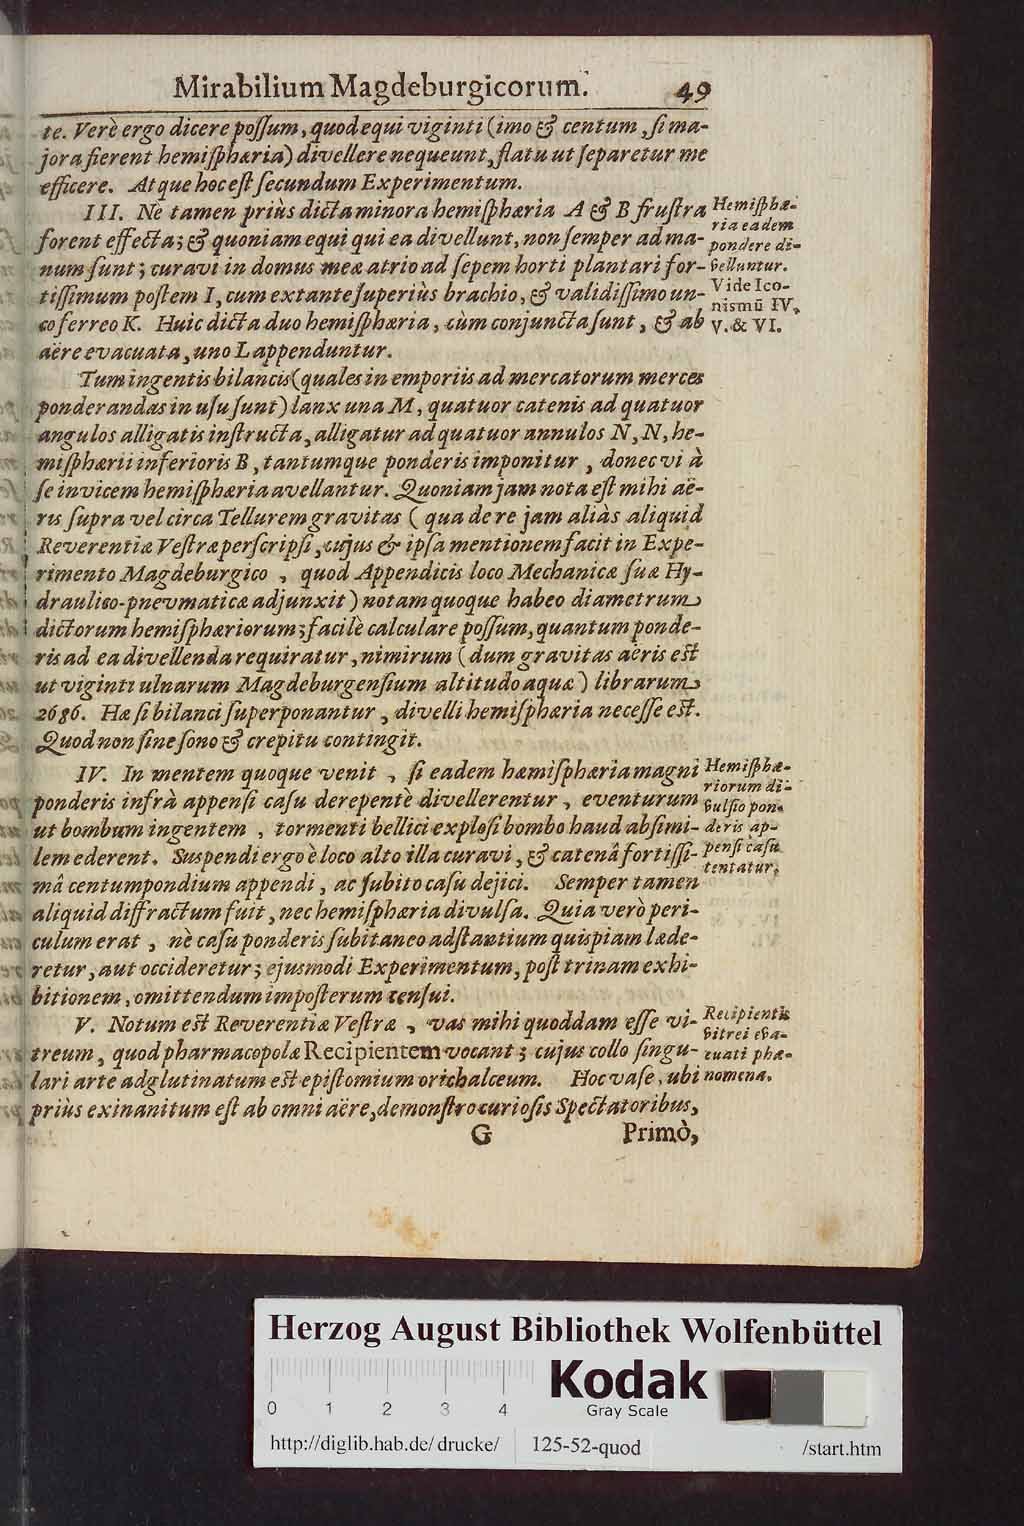 Mirabilium Magdeburgicorum. 49
te. Verè ergo dicere poſſum, quod equi viginti (imo & centum, ſi ma-
jora fierent hemiſphæria) divellere nequeunt, flatu ut ſeparetur me
efficere. Atque hoc eſt ſecundum Experimentum.
III. Ne tamen priùs dicta minora hemiſphæria A & B fruſtra
forent effecta; & quoniam equi qui ea divellunt, non ſemper ad ma-
num ſunt; curavi in domus meæ atrio ad ſepem horti plantari for-
tiſſimum poſtem I, cum extante ſuperiùs brachio, & validiſſimo un-
co ferreo K. Huic dicta duo hemiſphæria, cùm conjuncta ſunt, & ab
aëre evacuata, uno L appenduntur.
Hemiſphæ-
ria eadem
pondere di-
velluntur.
Vide Ico-
nismũ IV,
V. & VI.
Tum ingentis bilancis (quales in emporiis ad mercatorum merces
ponderandas in uſu ſunt) lanx una M, quatuor catenis ad quatuor
angulos alligatis inſtructa, alligatur ad quatuor annulos N, N, he-
miſphærii inferioris B, tantumque ponderis imponitur, donec vi à
ſe invicem hemiſphæria avellantur. Quoniam jam nota eſt mihi aë-
ris ſupra vel circa Tellurem gravitas (qua de re jam aliàs aliquid
Reverentiæ Veſtræ perſcripſi, cujus & ipſa mentionem facit in Expe-
rimento Magdeburgico, quod Appendicis loco Mechanicæ ſuæ Hy-
draulico-pnevmaticæ adjunxit) notam quoque habeo diametrum
dictorum hemiſphæriorum; facilè calculare poſſum, quantum ponde-
ris ad ea divellenda requiratur, nimirum (dum gravitas aëris eſt
ut viginti ulnarum Magdeburgenſium altitudo aquæ) librarum
2686. Hæ ſi bilanci ſuperponantur, divelli hemiſphæria neceſſe eſt.
Quod non ſine ſono & crepitu contingit.
IV. In mentem quoque venit, ſi eadem hæmiſphæria magni
ponderis infrà appenſi caſu derepentè divellerentur, eventurum
ut bombum ingentem, tormenti bellici exploſi bombo haud abſimi-
lem ederent. Suspendi ergo è loco alto illa curavi, & catenâ fortiſſi-
mâ centumpondium appendi, ac ſubito caſu dejici. Semper tamen
aliquid diffractum fuit, nec hemiſphæria divulſa. Quia verò peri-
culum erat, nè caſu ponderis ſubitaneo adſtantium quiſpiam læde-
retur, aut occideretur; ejusmodi Experimentum, poſt trinam exhi-
bitionem, omittendum impoſterum cenſui.
Hemiſphæ-
riorum di-
vulſio pon-
deris ap-
penſi caſu
tentatur.
V. Notum eſt Reverentiæ Veſtræ, vas mihi quoddam eſſe vi-
treum, quod pharmacopolæ Recipientem vocant; cujus collo ſingu-
lari arte adglutinatum eſt epiſtomium orichalceum. Hoc vaſe, ubi
priùs exinanitum eſt ab omni aëre, demonſtro curioſis Spectatoribus,
Recipientis
vitrei eva-
cuati phæ-
nomena.
G Primò,
Herzog August Bibliothek Wolfenbüttel
0 1 2 3 4
Kodak
Gray Scale
http://diglib.hab.de/drucke/ 125-52-quod /start.htm